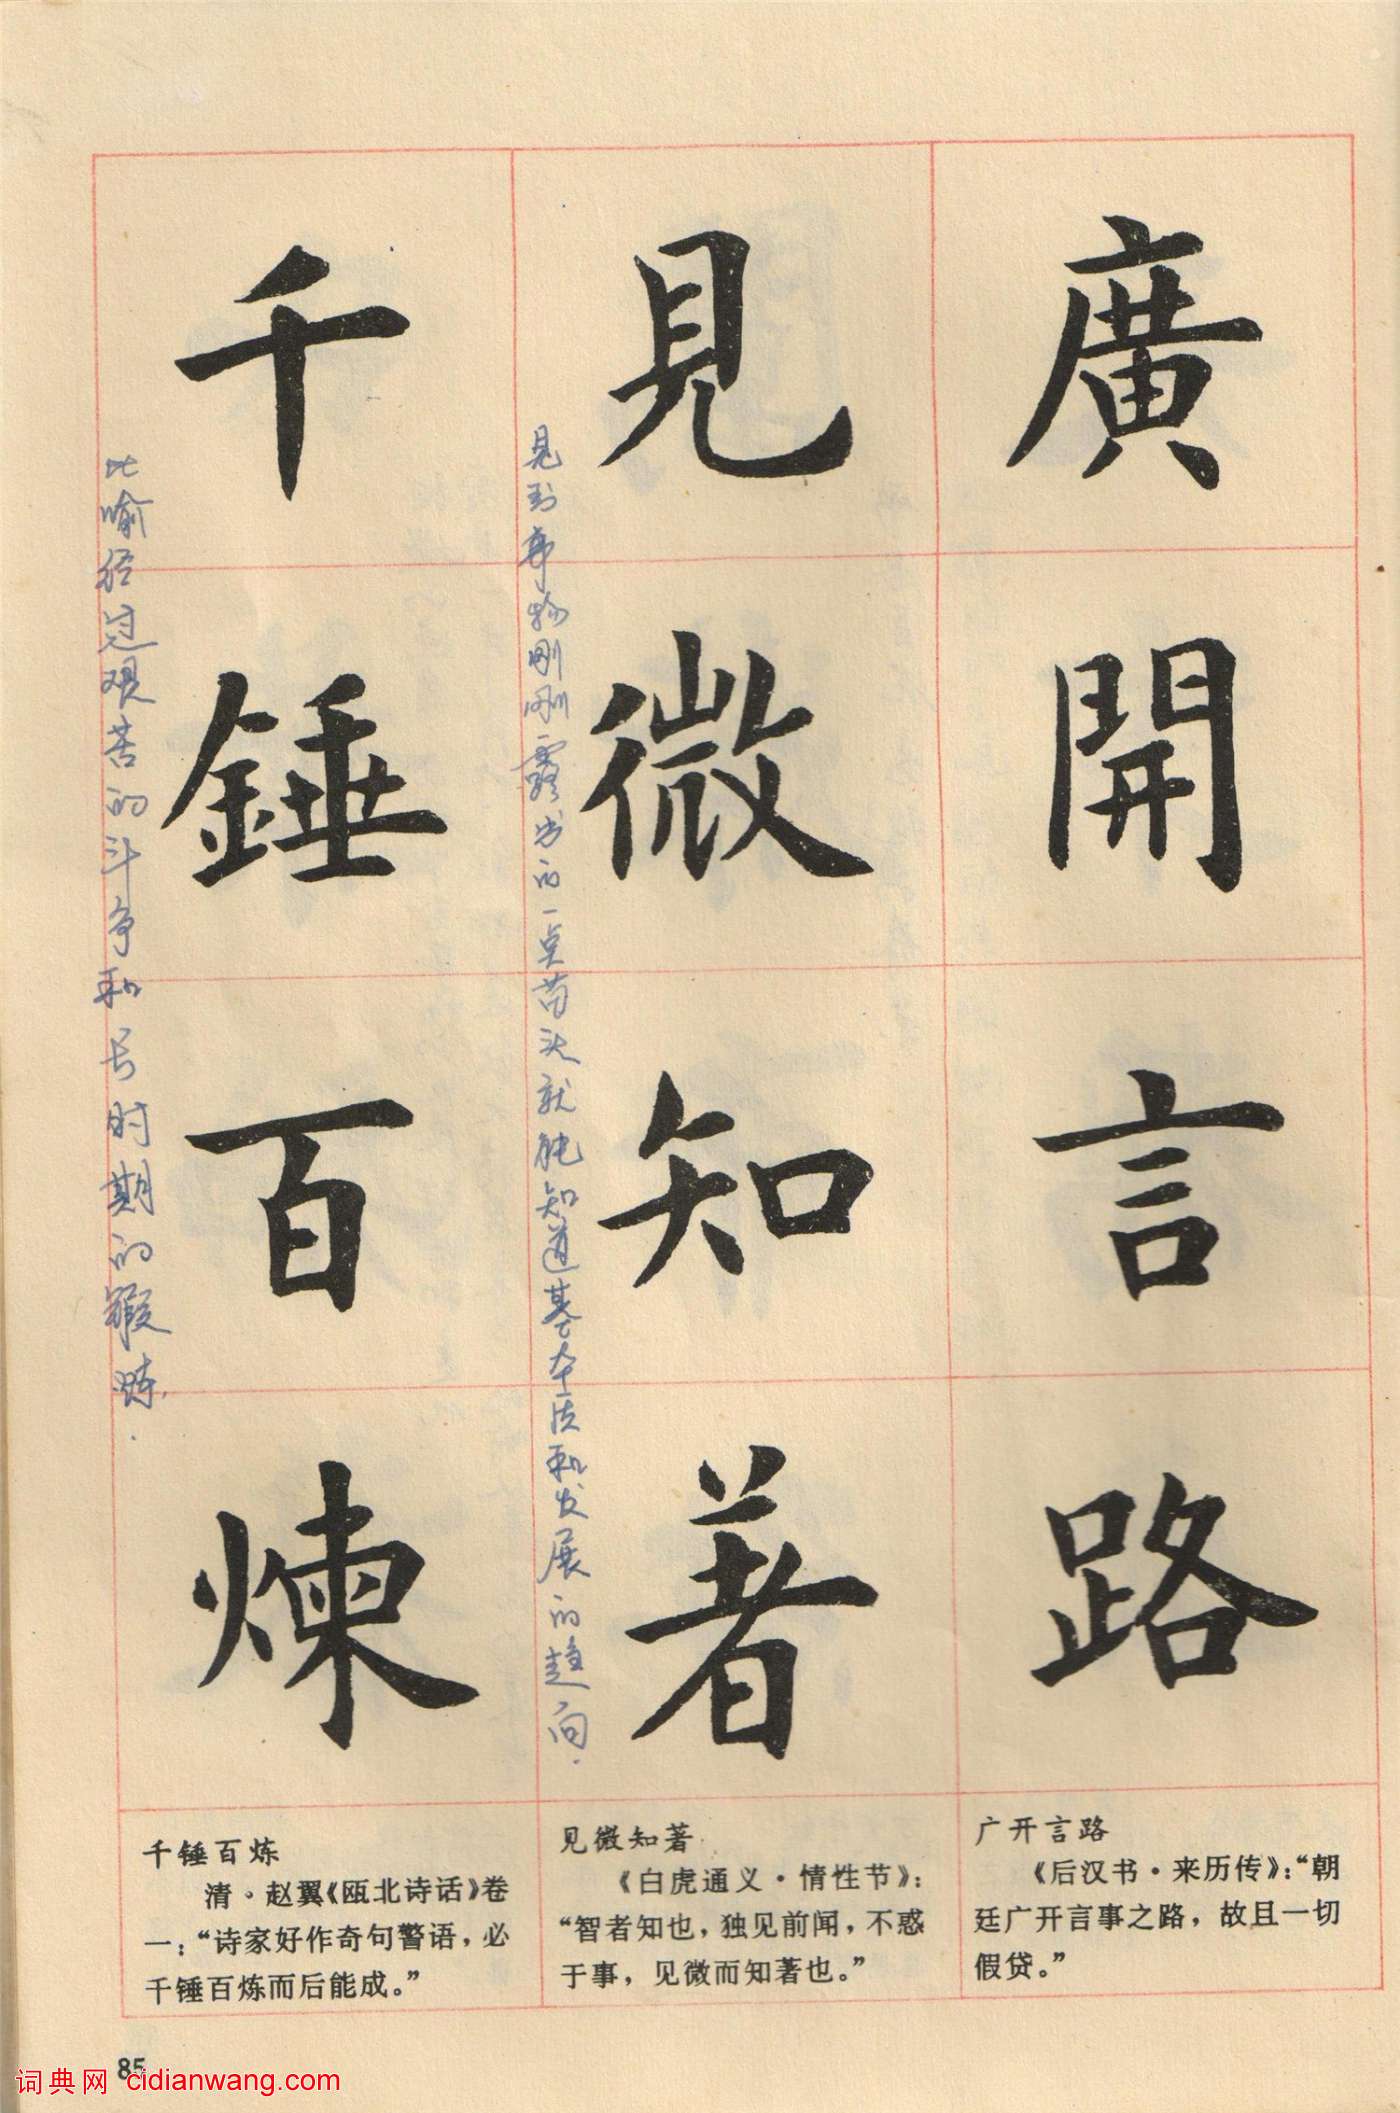 廣開言路
見微知著
见到事物刚刚露出的一点苗头就能知道其本质和发展的趋向.
千錘百煉
比喻经过艰苦的斗争和长时期的锻炼.
广开言路
《后汉书·来历传》：“朝
廷广开言事之路，故且一切
假贷。”
见微知著
《白虎通义·情性节》：
“智者知也，独见前闻，不惑
于事，见微而知著也。”
千锤百炼
清·赵翼《瓯北诗话》卷
一：“诗家好作奇句警语，必
千锤百炼而后能成。”
85
词典网 cidianwang.com